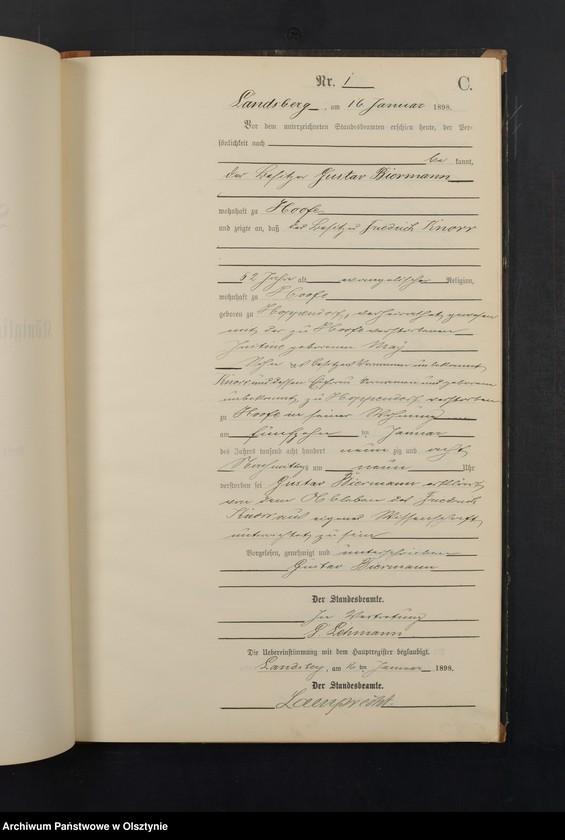 Nr. 1
C.
Landsberg, am 16 Januar 1898.
Vor dem unterzeichneten Standesbeamten erschien heute, der Per-
sönlichkeit nach
be kannt,
der Besitzer Gustav Biermann
wohnhaft zu Hoofe
und zeigte an, daß der Besitzer Friedrich Knorr
52 Jahre alt, evangelischer Religion,
wohnhaft zu Hoofe
geboren zu Hoppendorf, verheirathet gewesen
mit der zu Hoofe verstorbenen
Justine geborenen May
Sohn des Besitzers Vornamen unbekannt
Knorr und dessen Ehefrau Vornamen und geborene
unbekannt, zu Hoppendorf verstorben
zu Hoofe in seiner Wohnung
am fünfzehn ten Januar
des Jahres tausend acht hundert neun zig und acht
Nachmittags um neun Uhr
verstorben sei Gustav Biermann erklärte
von dem Ableben des Friedrich
Knorr aus eigener Wissenschaft
unterrichtet zu sein
Vorgelesen, genehmigt und unterschrieben
Gustav Biermann
Der Standesbeamte.
In Vertretung
Lehmann
Die Uebereinstimmung mit dem Hauptregister beglaubigt.
Landsberg, am 16 ten Januar 1898.
Der Standesbeamte.
Lamprecht.
Archiwum Państwowe w Olsztynie